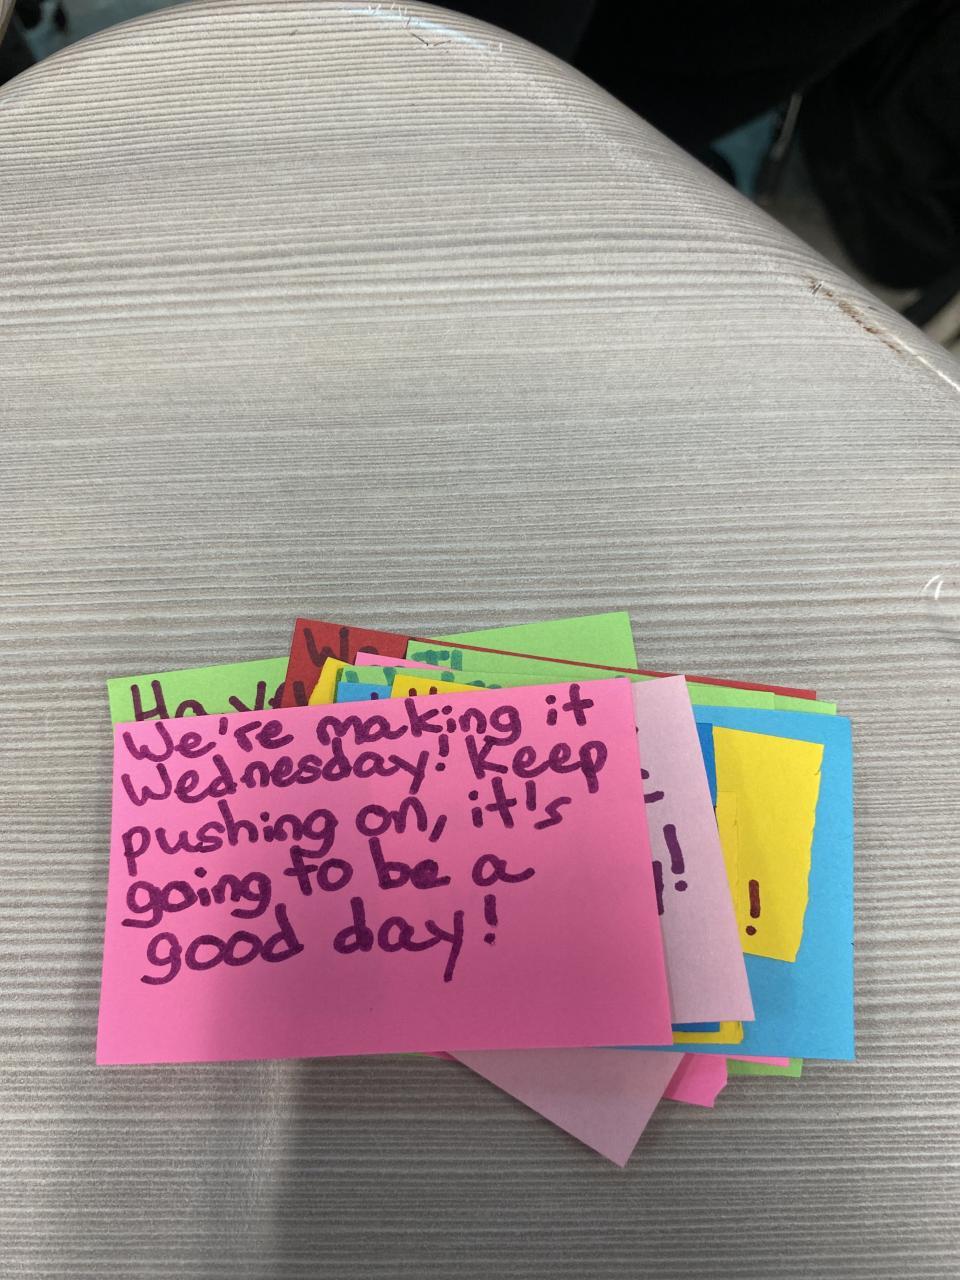 We're making it
Wednesday! Keep
pushing on, it's
going to be a
good day!